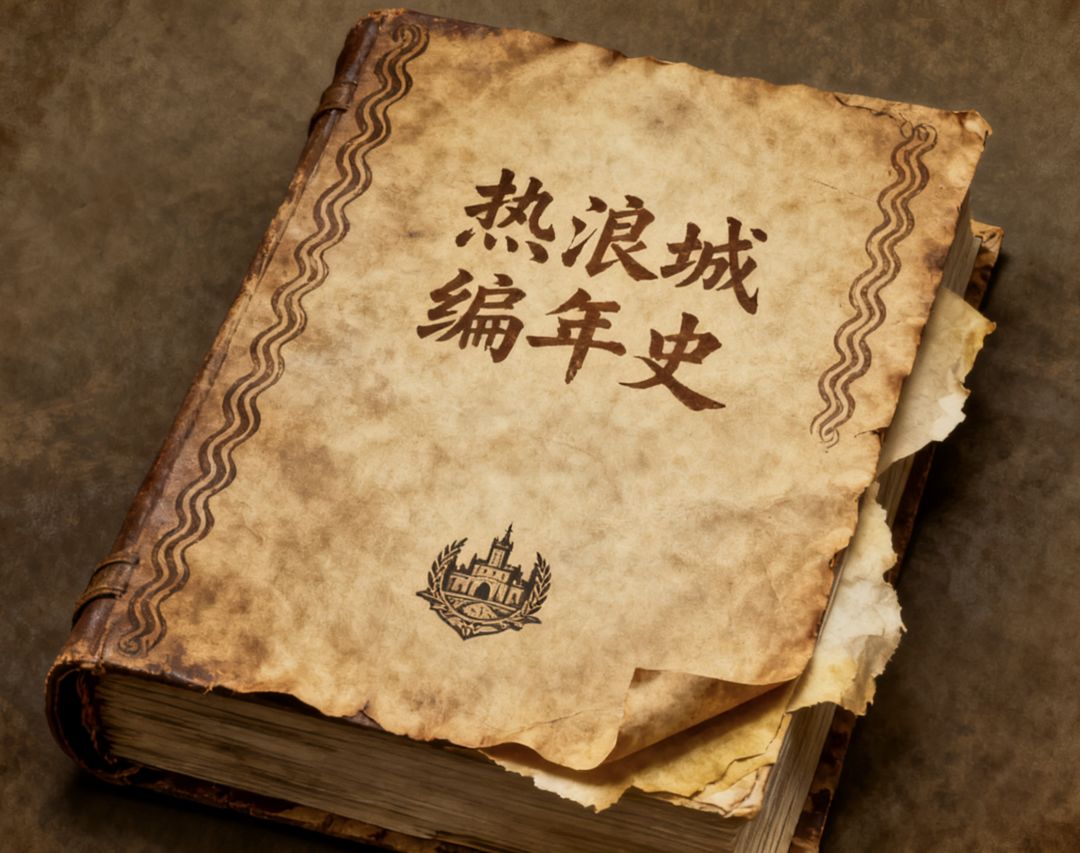 热浪城
编年史